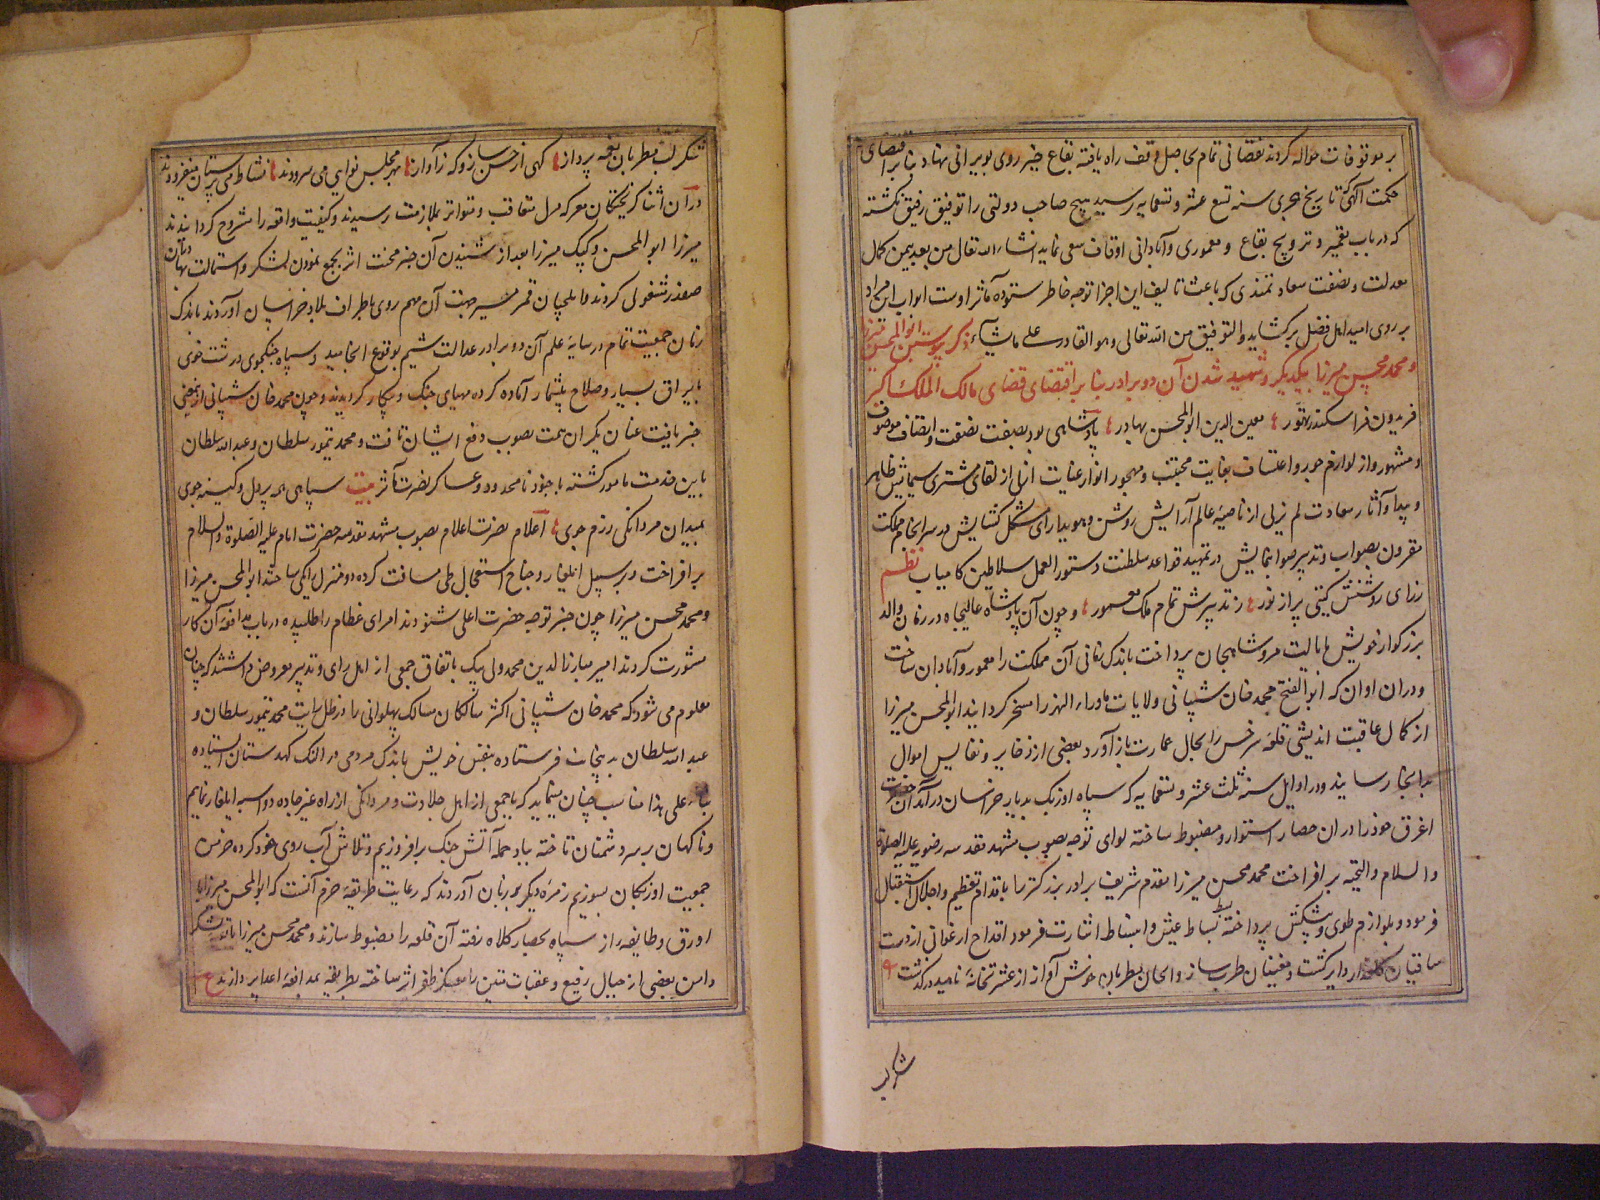 بر موقوفات حواله کردند نقصانی تمام بحاصل وقف راه یافته بقاع خیر روی بویرانی نهاد بنابر اقتضای
حکمت آلهی تا تاریخ هجری سنه تسع عشر و تسعمایه رسید هیچ صاحب دولتی را توفیق رفیق نگشته
که در باب تعمیر و ترویج بقاع و معموری و آبادانی اوقاف سعی نماید انشاء الله تعالی من بعد بیمن کمال
معدلت و نصفت سعادتمندی که باعث تالیف این اجزا توجه خاطر ستوده مآثر اوست ابواب این مراد
بر روی امید اهل فضل برگشاید والتوفیق من الله تعالی وهو القادر علی مایشاء ذکر پیوستن ابوالمحسن میرزا
و محمد محسن میرزا بیکدیگر و شهید شدن آن دو برادر بنابر اقتضای قضای مالک الملک اکبر
فریدون فر اسکندر تهور معین الدین ابوالمحسن بهادر پادشاهی بود بصفت نصفت و انصاف موصوف
و مشهور و از لوازم جور و اعتساف بغایت مجتنب و مهجور انوار عنایت ازلی از لقای مشتری سیمایش ظاهر
و پیدا و آثار سعادت لم یزلی از ناصیه عالم آرایش روشن و هویدا رای مشکل گشایش در سرانجام مملکت
مقرون بصواب و تدبیر صواب نمایش در تمهید قواعد سلطنت دستور العمل سلاطین کامیاب نظم
ز رای روشنش گیتی پر از نور ز تدبیرش تمام ملک معمور و چون آن پادشاه عالیجاه در زمان والد
بزرکوار خویش بایالت مرو شاهیجان پرداخت باندک زمانی آن مملکت را معمور و آبادان ساخت
و دران اوان که ابوالفتح محمد خان شیبانی ولایات ماوراء النهر را مسخر کردانید ابوالمحسن میرزا
از کمال عاقبت اندیشی قلعه سرخس را بحال عمارت باز آورد بعضی از ذخایر و نفایس اموال
بدانجا رسانید و در اوایل سنه ثلث عشر و تسعمایه که سپاه اوزبک بدیار خراسان درآمد آن حضرت
اغرق خود را دران حصار استوار و مضبوط ساخته لوای توجه بصوب مشهد مقدسه رضویه علیه الصلوة
والسلام والتحیه برافراخت محمد محسن میرزا مقدم شریف برادر بزرکتر را باقدام تعظیم و اجلال استقبال
فرمود و بلوازم طوی و پیشکش پرداخته بساط عیش و انبساط اشارت فرمود اقداح ارغوانی از دست
ساقیان کلعذار دایر گشت و مغنیان طرب ساز و الحان مطربان خوش آواز از عشرتخانه ناهید درگذشت
شکر لب
شکر لب مطربان نغمه پرداز گهی از حسن ساز و که ز آواز بهر مجلس نوایی می سرودند نشاط می پرستان می فزودند
در آن اثنا کریختکان معرکه مرل متعاقب و متواتر بملازمت رسیدند و کیفیت واقعه را مشروح کردانیدند
میرزا ابوالمحسن و کپک میرزا بعد از شنیدن آن خبر محنت اثر بجمع نمودن لشکر و استمالت
صفدر مشغولی کردند و ایلچیان قمر مسیر جهت آن مهم روی باطراف بلاد خراسان آوردند باندک
زمان جمعیت تمام در سایه علم آن دو برادر عدالت شیم بوقوع انجامید و سپاه جنکجوی درشت خوی
با یراق بسیار و صلاح بیشمار آماده کرده مهیای جنک و پیکار کردیدند و چون محمد خان شیبانی از این معنی
خبر یافت عنان یکران همت بصوب دفع ایشان تافت و محمد تیمور سلطان و عبد الله سلطان
باین خدمت مامور کشته با جنود نامحدود و عساکر نصرت مآثر بیت سپاهی همه پر دل و کینه جوی
بمیدان مردانکی رزم جوی اعلام نصرت اعلام بصوب مشهد مقدسه حضرت امام علیه الصلوة والسلام
برافراخت و بر سبیل ایلغار و جناح استعجال طی مسافت کرده دو منزل یکی ساختند ابوالمحسن میرزا
و محمد محسن میرزا چون خبر توجه حضرت اعلی شنودند امرای عظام را طلبیده در باب مدافعه آن کار
مشورت کردند امیر مبارزالدین محمد ولی بیک باتفاق جمعی از اهل رای و تدبیر معروض داشتند که چنان
معلوم می شود که محمد خان شیبانی اکثر سالکان مسالک پهلوانی را در ظل رایت محمد تیمور سلطان و
عبد الله سلطان بدینجانب فرستاده بنفس خویش باندک مردمی در النک کهدستان ایستاده
بناء علی هذا مناسب چنان مینماید که با جمعی از اهل جلادت و مردانکی از راه غیر جاده دو اسبه ایلغار نمایم
و ناکهان بر سر دشمنان تاخته بباد حمله آتش جنک برافروزیم و بتلاش آب روی خود کرده خرمن
جمعیت اوزبکان بسوزیم زمره دیکر بر زبان آوردند که رعایت طریقه حزم آنست که ابوالمحسن میرزا با
اورق و طایفه از سپاه بحصار کلاه رفته آن قلعه را مضبوط سازند و محمد محسن میرزا با تمام لشکر
دامن بعضی از جبال رفیع و عقبات متین را معسکر ظفر اثر ساخته بطریقه بمدافعه اعدا پردازند